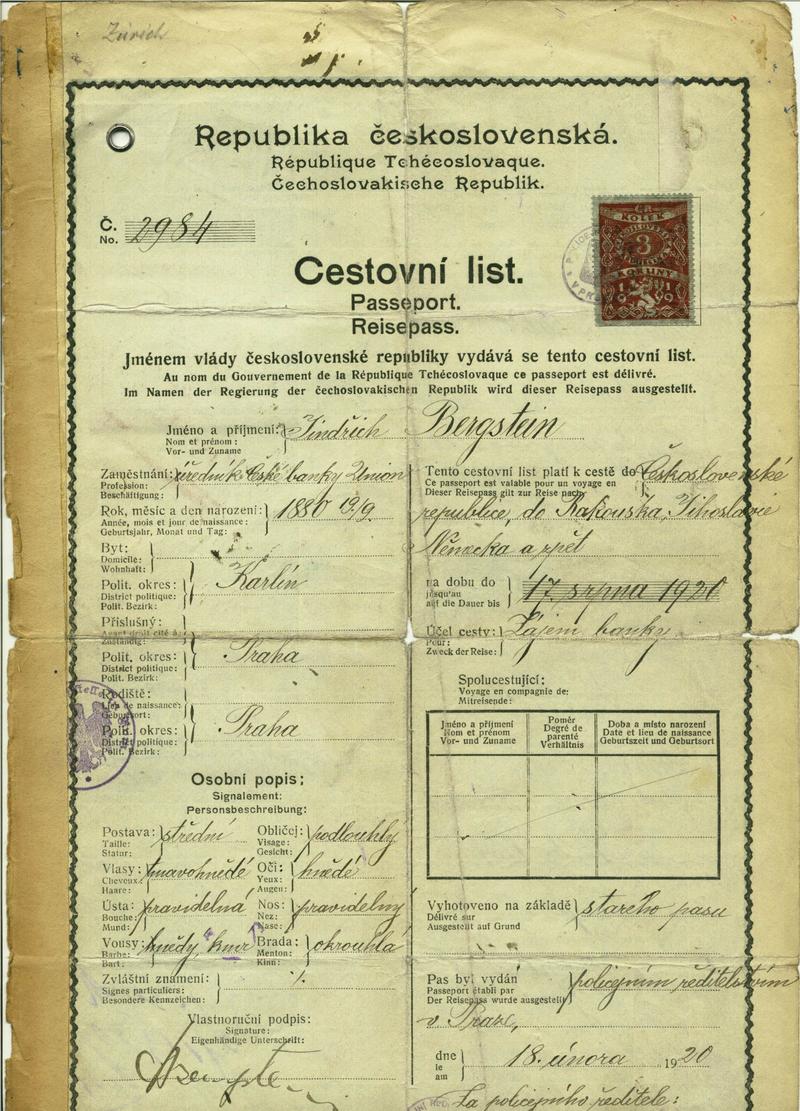 Zürich
Republika československá.
République Tchécoslovaque.
Čechoslovakische Republik.
Č.
No.
2984
KOLEK
3
KORUNY
1919
Cestovní list.
Passeport.
Reisepass.
Jménem vlády československé republiky vydává se tento cestovní list.
Au nom du Gouvernement de la République Tchécoslovaque ce passeport est délivré.
Im Namen der Regierung der čechoslovakischen Republik wird dieser Reisepass ausgestellt.
Jméno a příjmení: Jindřich Bergstein
Nom et prénom:
Vor- und Zuname
Zaměstnání: úředník České banky Union
Profession:
Beschäftigung:
Rok, měsíc a den narození: 1880 19/9.
Année, mois et jour de naissance:
Geburtsjahr, Monat und Tag:
Byt:
Domicile:
Wohnhaft:
Polit. okres: Karlín
District politique:
Polit. Bezirk:
Příslušný:
Avant droit cité à:
Zuständig:
Polit. okres: Praha
District politique:
Polit. Bezirk:
Rodiště:
Lieu de naissance:
Geburtsort:
Polit. okres: Praha
District politique:
Polit. Bezirk:
Osobní popis:
Signalement:
Personsbeschreibung:
Postava: střední
Taille:
Statur:
Obličej: podlouhlý
Visage:
Gesicht:
Vlasy: tmavohnědé
Cheveux:
Haare:
Oči: hnědé
Yeux:
Augen:
Ústa: pravidelná
Bouche:
Mund:
Nos: pravidelný
Nez:
Nase:
Vousy: hnědý, knír
Barbe:
Bart:
Brada: okrouhlá
Menton:
Kinn:
Zvláštní znamení: ⁒
Signes particuliers:
Besondere Kennzeichen:
Vlastnoruční podpis:
Signature:
Eigenhändige Unterschrift:
Tento cestovní list platí k cestě do Československé
Ce passeport est valable pour un voyage en
Dieser Reisepass gilt zur Reise nach
republice, do Rakouska, Jihoslavie
Německa a zpět
na dobu do 17. srpna 1920
jusqu'au
auf die Dauer bis
Účel cesty: Zájem banky
Pour:
Zweck der Reise:
Spolucestující:
Voyage en compagnie de:
Mitreisende:
Jméno a příjmení
Nom et prénom
Vor- und Zuname
Poměr
Degré de
parenté
Verhältnis
Doba a místo narození
Date et lieu de naissance
Geburtszeit und Geburtsort
Vyhotoveno na základě starého pasu
Délivré sur
Ausgestellt auf Grund
Pas byl vydán policejním ředitelstvím
Passeport établi par
Der Reisepass wurde ausgestellt
v Praze,
dne 18. února 1920
le
am
Za policejního ředitele: